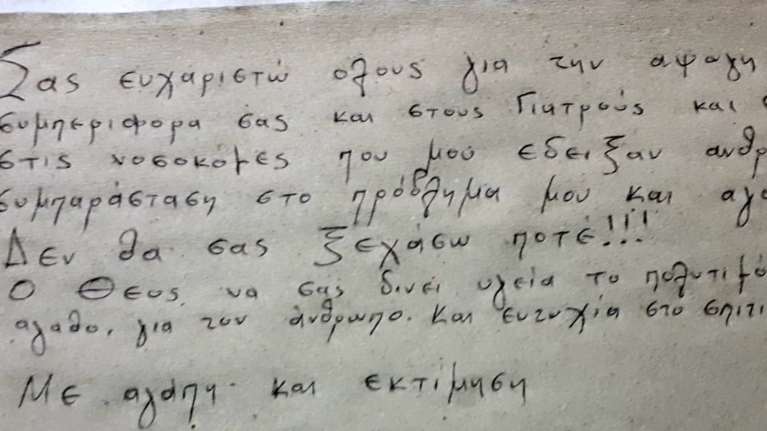 Σας ευχαριστώ ολους για την αψογη
συμπεριφορα σας και στους Γιατρούς και
στις νοσοκόμες που μου εδειξαν ανθρ
συμπαράσταση στο πρόβλημα μου και αγα
Δεν θα σας ξεχάσω ποτέ!!!
Ο Θεος να σας δινει υγεία το πολυτιμό
αγαθο, για τον άνθρωπο. και ευτυχία στο σπιτι
Με αγάπη και εκτίμηση